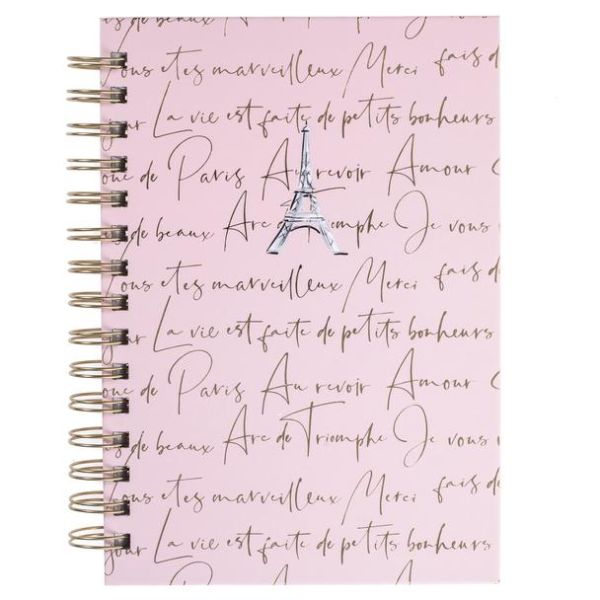 is de beaux Arc de Triomphe Je vous
Vous etes marveilleux Merci fais d
jour La vie est faite de petits bonheurs
oue de Paris Au revoir Amour C
is de beaux Arc de Triomphe Je vous
Vous etes marveilleux Merci fais d
jour La vie est faite de petits bonheurs
oue de Paris Au revoir Amour C
is de beaux Arc de Triomphe Je vous
Vous etes marveilleux Merci fais d
jour La vie est faite de petits bonheurs